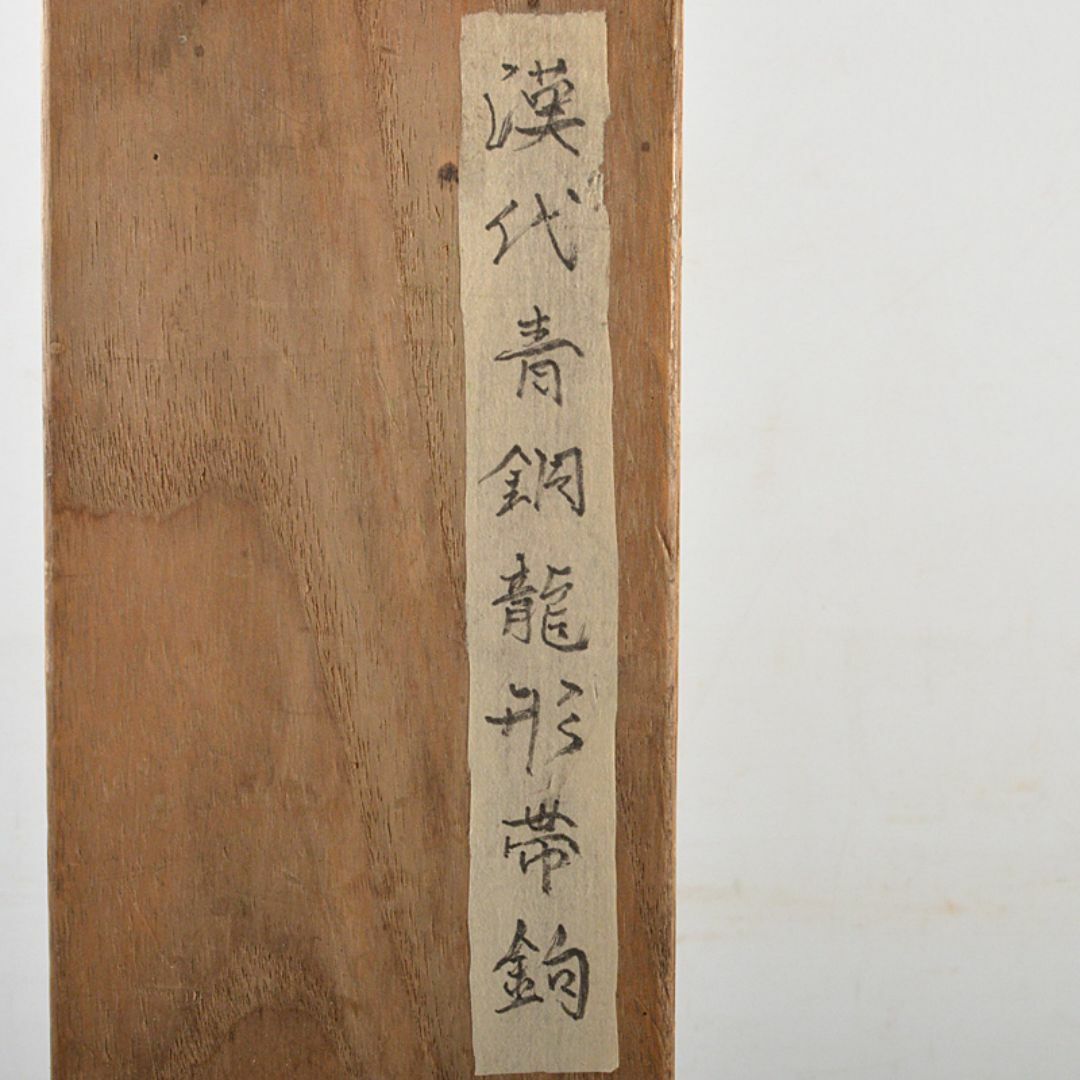 漢代青銅龍形帯鉤